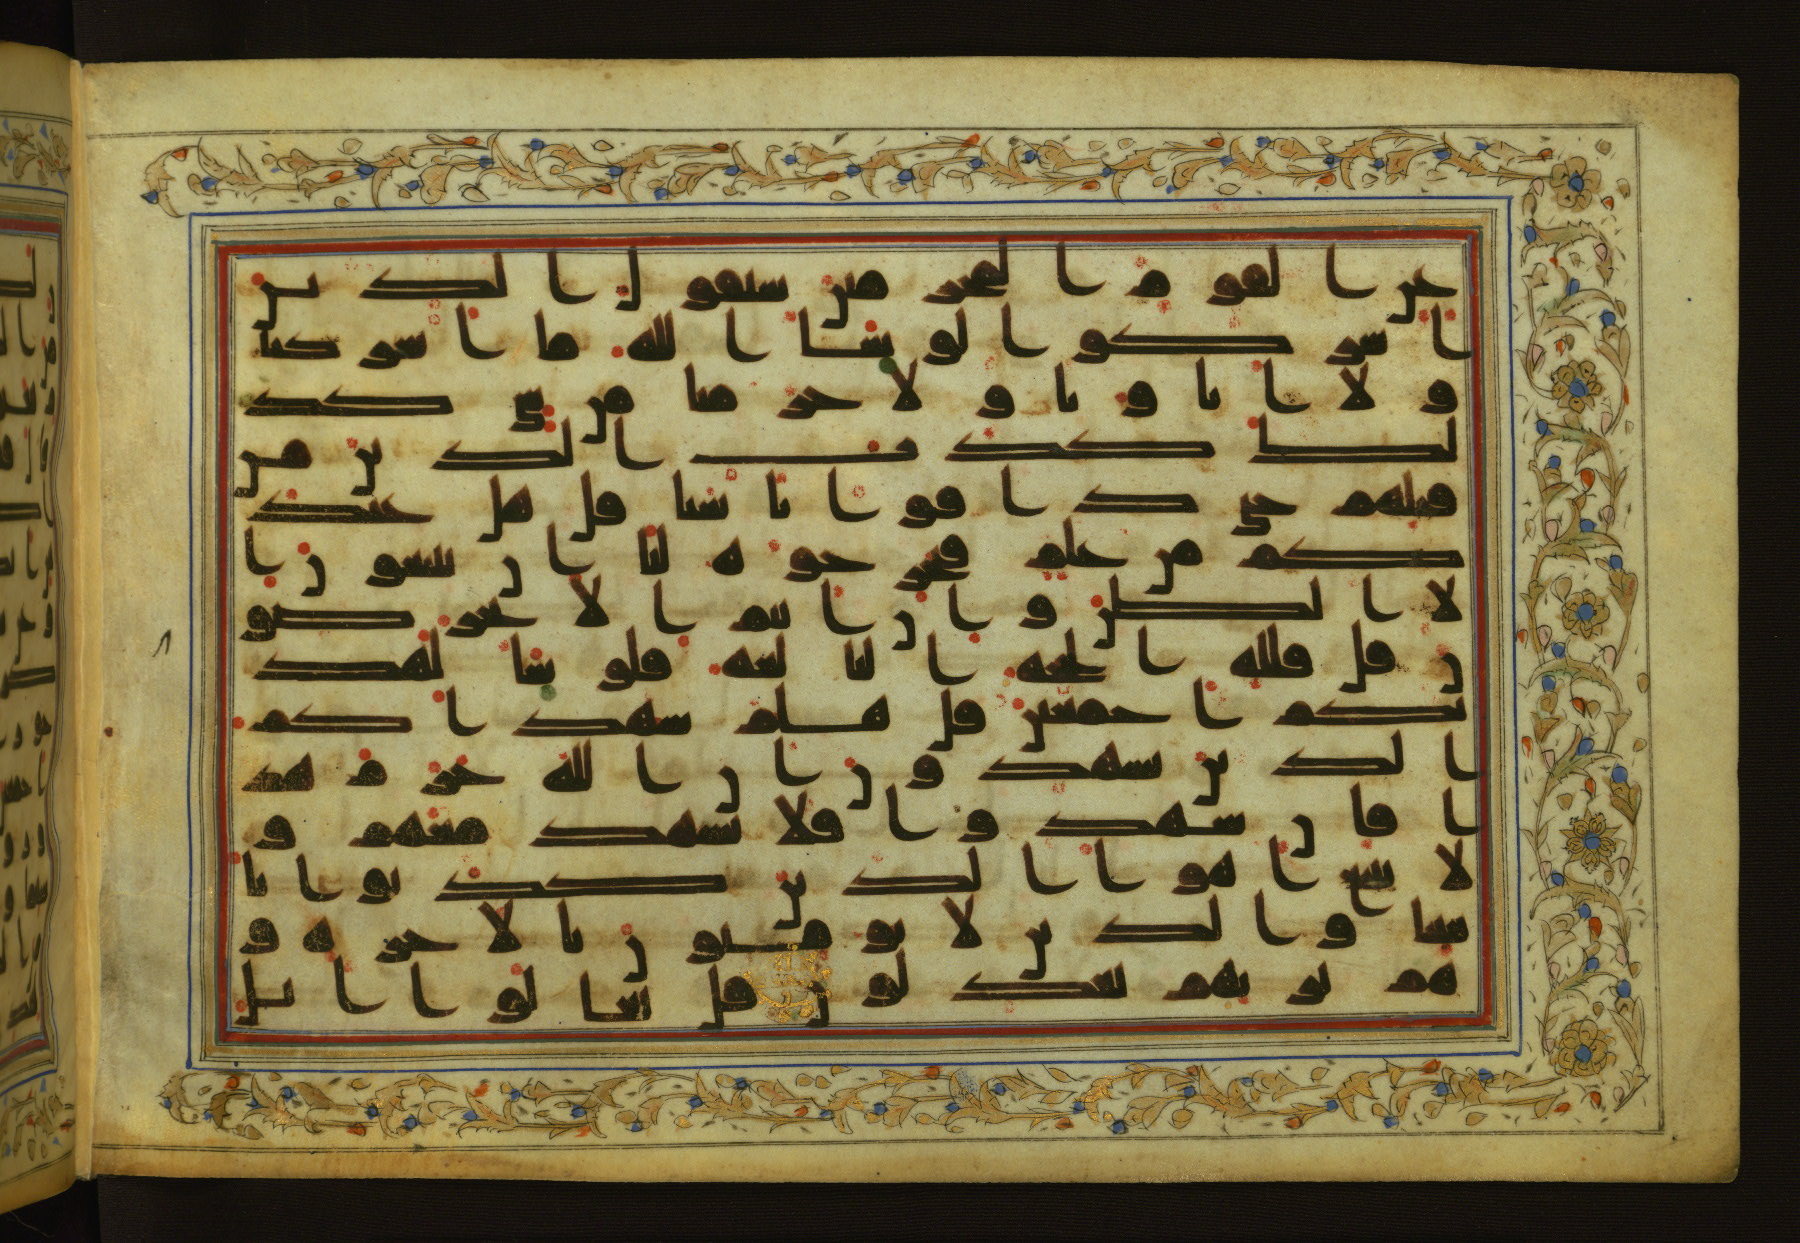 عن القوم المجرمين سيقول الذين
اشركوا لو شا الله ما اشركنا
ولا اباونا ولا حرمنا من شي كذ
لك كذب الذين من
قبلهم حتى ذاقوا باسنا قل هل عند
كم من علم فتخرجوه لنا ان تتبعون ا
لا الظن وان انتم الا تخرصو
ن قل فلله الحجه البلغه فلو شا لهد
يكم اجمعين قل هلم شهداكم
الذين يشهدون ان الله حرم هذ
ا فان شهدوا فلا تشهد معهم و
لا تتبع اهوا الذين كذبوا با
يتنا والذين لا يومنون بالاخره و
هم بربهم يعدلون قل تعالوا اتل